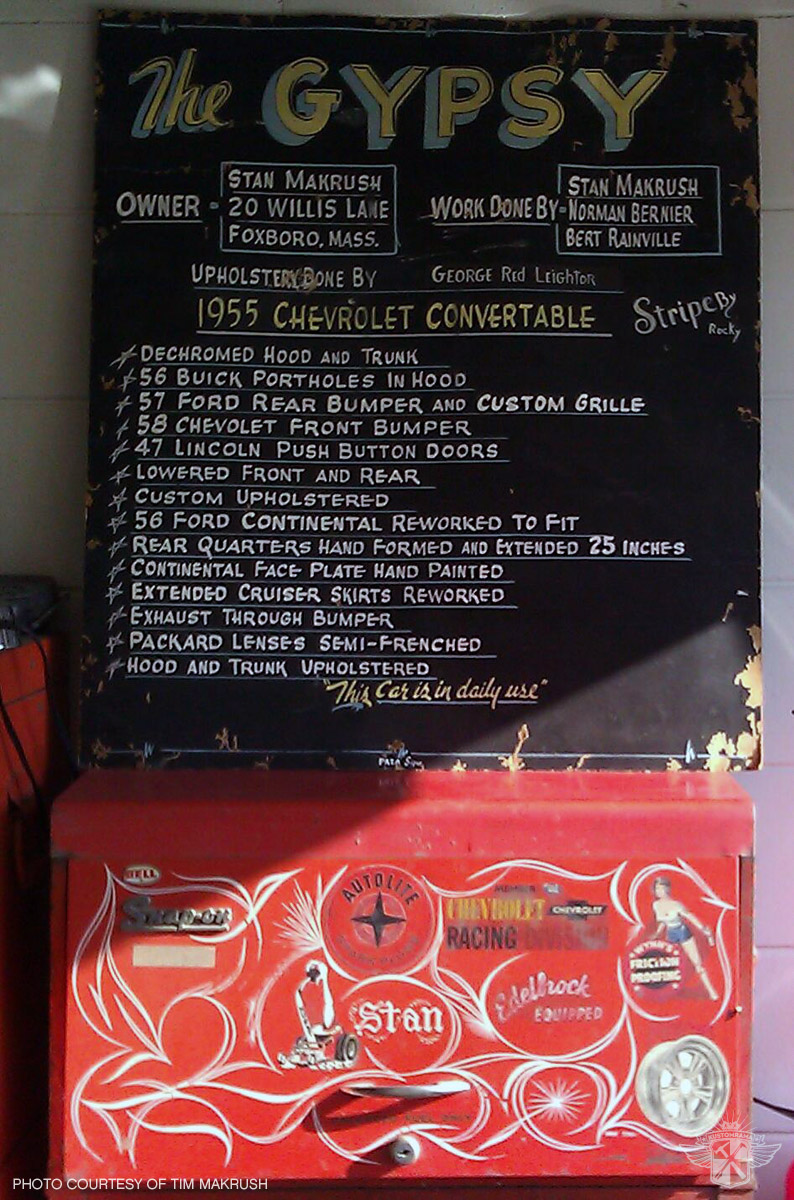 The GYPSY
OWNER - STAN MAKRUSH
20 WILLIS LANE
FOXBORO, MASS.
WORK DONE BY - STAN MAKRUSH
NORMAN BERNIER
BERT RAINVILLE
UPHOLSTERY DONE BY GEORGE Red LEIGHTOR
1955 CHEVROLET CONVERTABLE
Stripe By
Rocky
DECHROMED HOOD AND TRUNK
56 BUICK PORTHOLES IN HOOD
57 FORD REAR BUMPER AND CUSTOM GRILLE
58 CHEVOLET FRONT BUMPER
47 LINCOLN PUSH BUTTON DOORS
LOWERED FRONT AND REAR
CUSTOM UPHOLSTERED
56 FORD CONTINENTAL REWORKED TO FIT
REAR QUARTERS HAND FORMED AND EXTENDED 25 INCHES
CONTINENTAL FACE PLATE HAND PAINTED
EXTENDED CRUISER SKIRTS REWORKED
EXHAUST THROUGH BUMPER
PACKARD LENSES SEMI-FRENCHED
HOOD AND TRUNK UPHOLSTERED
"This Car is in daily use"
BELL
Snap-on
AUTOLITE
MEMBER
CHEVROLET CHEVROLET
RACING DIVISION
WYNN'S
FRICTION
PROOFING
Stan
Edelbrock
EQUIPPED
KUSTOMRAMA
PHOTO COURTESY OF TIM MAKRUSH